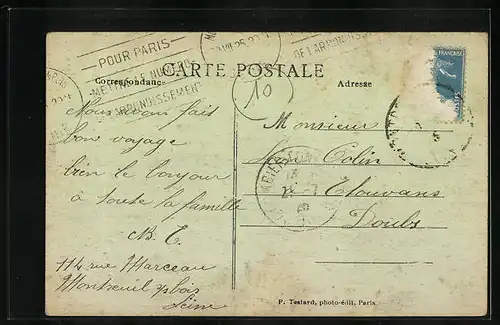 POUR PARIS
METTRE LE NUMÉRO
ARRONDISSEMENT
DE L'ARRONDISSEMENT
FRANÇAISE
Correspondance
CARTE POSTALE
Adresse
10
Nous avons fait
bon voyage
bien le bonjour
à toute la famille
B. C.
114 rue Marceau
Montreuil s/bois
Seine
Monsieur
Colin
à
Doubs
P. Testard, photo-édit. Paris